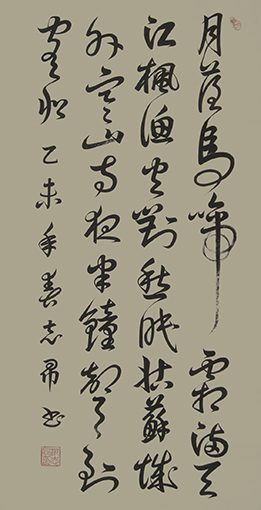 月落烏啼霜滿天
江楓漁火對愁眠姑蘇城
外寒山寺夜半鐘聲到
客船 乙未年春志書